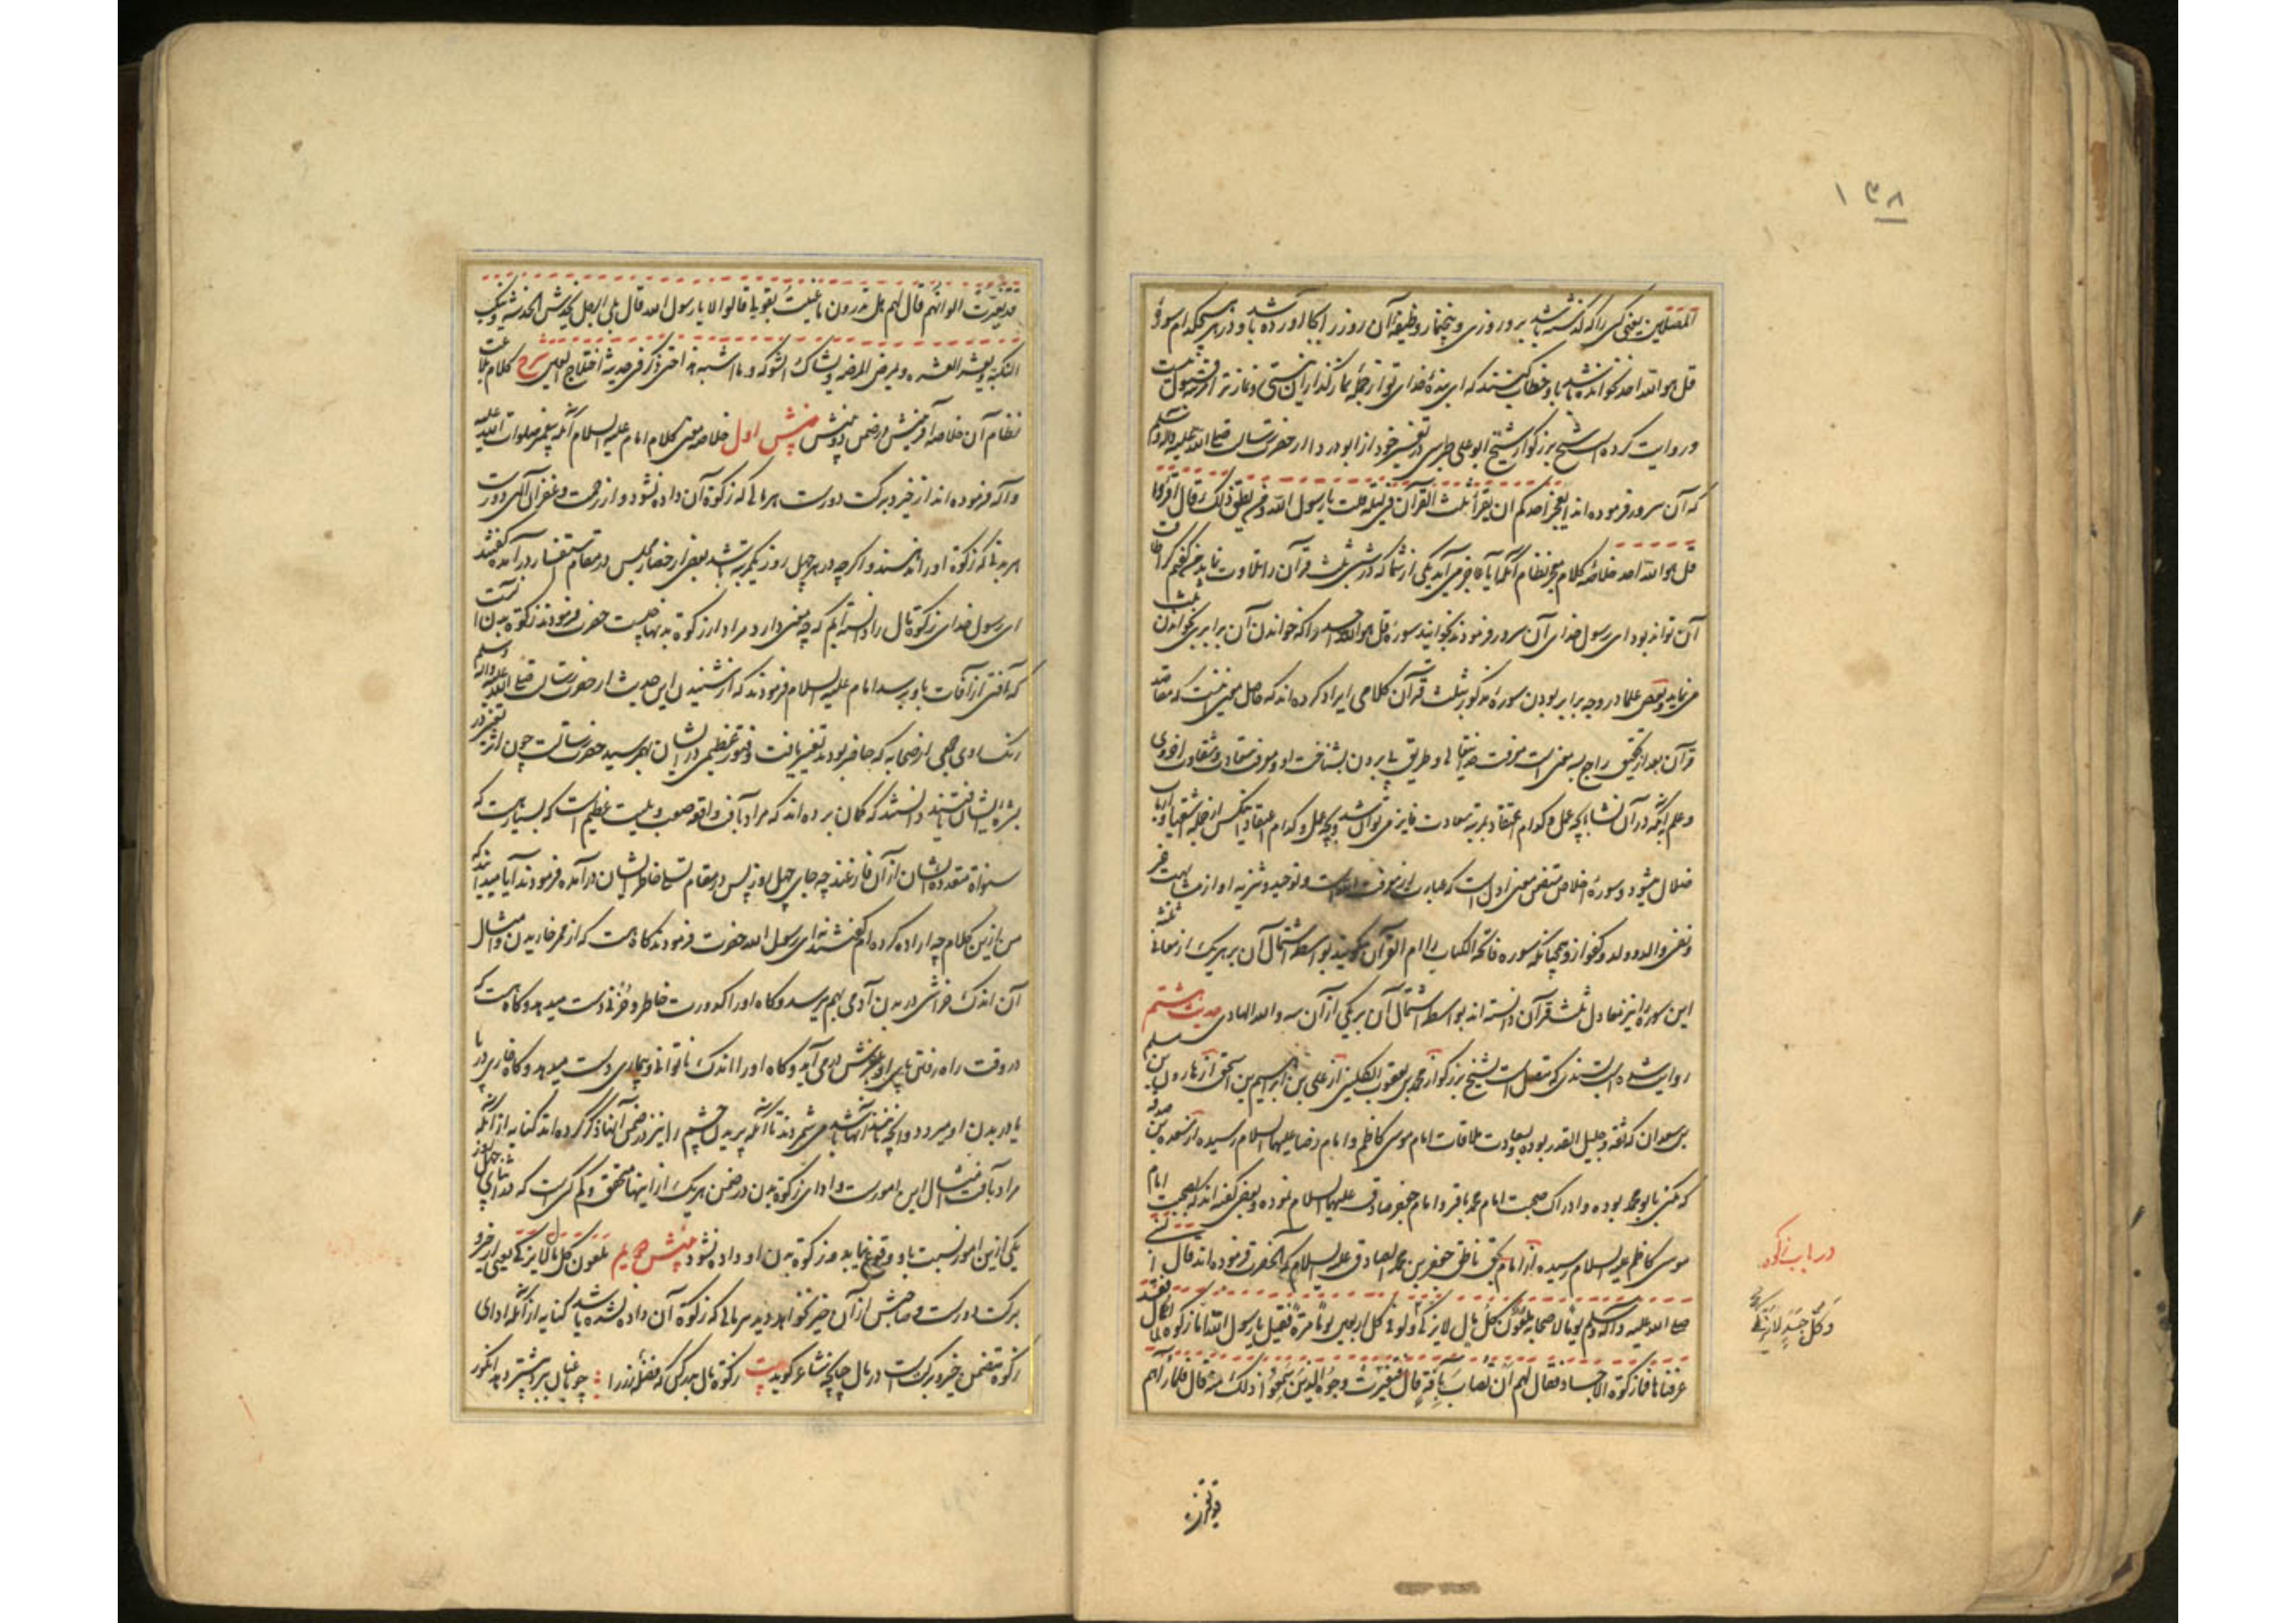 ۱۳۸
المصلین یعنی کسی را که گذشته باشد برو روزی و پنج نماز وظیفه آن روز را بجا آورده باشد و در هیچکدام سوره
قل هو الله احد نخوانده باشد باو خطاب کنند که ای بنده خدای تو از جمله نماز گذاران نیستی و نماز تو از مرتبه قبول نیست
و روایت کرده است شیخ بزرگوار شیخ ابو علی طبرسی در تفسیر خود از ابو دردا از حضرت رسالت صلی الله علیه و آله و سلم
که آن سرور فرموده اند ایعجز احدکم ان یقرأ ثلث القرآن فی لیلة قلت یا رسول الله و من یطیق ذلک قال اقرؤا
قل هو الله احد خلاصه کلام معجز نظام آنکه آیا عاجز می آید یکی از شما که در شبی ثلث قرآن را تلاوت نماید من گفتم کرا طاقت
آن تواند بود ای رسول خدای آن سرور فرمودند بخوانید سوره قل هو الله احد را که خواندن آن برابر بخواندن ثلث
می نماید و بعضی علما در وجه برابر بودن سوره مذکور بثلث قرآن کلامی ایراد کرده اند که حاصل معنیش اینست که مقاصد
قرآن بعد از تحقیق راجع بسه معنی است معرفت خدایتعالی و طریق پی بردن بشناخت او و معرفت سعادت و شقاوت اخروی
و علم بآنکه در آن نشأ بچه عمل و کدام اعتقاد بمرتبه سعادت فایز می توان شد و بچه عمل و کدام اعتقاد بر عکس از جمله اشقیا و ارباب
ضلال میشود و سوره اخلاص متضمن معنی اول است که عبارت از معرفت الله است و توحید و تنزیه او از مشابهت غیر
و نفی والد و ولد و کفو ازو همچنانکه سوره فاتحة الکتاب را ام القرآن میگویند بواسطه اشتمال آن بر هر یک از معانی ثلثه
این سوره را نیز معادل ثلث قرآن دانسته اند بواسطه اشتمال آن بر یکی از آن سه والله الهادی حدیث هشتم
روایت شده است بسندی که متصل است بشیخ بزرگوار محمد بن یعقوب الکلینی از علی بن ابراهیم بن از هارون بن مسلم
بن سعدان که ثقه و جلیل القدر بوده و بسعادت ملاقات امام موسی کاظم و امام رضا علیهما السلام رسیده از مسعدة بن صدقه
که مکنی بابو محمد بوده و ادراک صحبت امام محمد باقر و امام جعفر صادق علیهما السلام نموده و بعضی گفته اند که بصحبت امام
موسی کاظم علیه السلام رسیده از امام بحق ناطق جعفر بن محمد الصادق علیه السلام که آنحضرت فرموده اند قال النبی
صلی الله علیه و آله و سلم یوما لاصحابه ملعون کل مال لا یزکی ولو فی کل اربعین یوما مرة فقیل یا رسول الله اما زکوة المال فقد
عرفناها فما زکوة الاجساد فقال لهم ان تصاب بآفة قال فتغیرت وجوه الذین سمعوا ذلک منه قال فلما رآهم
قد تغیرت
در باب زکوة
وکل جسد لا یزکی
قد تغیرت الوانهم قال لهم هل تدرون ما عنیت بقولی قالوا لا یا رسول الله قال بلی الرجل یخدش الخدشة و ینکب
النکبة و یعثر العثرة و یمرض المرضة و یشاک الشوکة و ما اشبه هذا حتی ذکر فی حدیثه اختلاج العین شرح کلام بلاغت
نظام آن خلاصه آفرینش در ضمن دو بینش بینش اول خلاصه معنی کلام امام علیه السلام آنکه پیغمبر صلوات الله علیه
و آله فرموده اند از خیر و برکت دورست هر مالی که زکوة آن داده نشود و از رحمت و غفران الهی دورست
هر بدنی که زکوة او را ندهند و اگر چه در هر چهل روز یکمرتبه باشد بعضی از حضار مجلس در مقام استفسار در آمده گفتند
ای رسول خدای زکوة مال را دانسته ایم که چه معنی دارد مراد از زکوة بدنها چیست حضرت فرمودند زکوة بدن آنست
که آفتی از آفات باو برسد امام علیه السلام فرمودند که از شنیدن این حدیث از حضرت رسالت صلی الله علیه و آله و سلم
رنگ و روی جمعی از صحابه که حاضر بودند تغییر یافت و فتور عظیمی در ایشان بهم رسید حضرت رسالت چون اثر تغیر در
بشره ایشان یافتند دانستند که گمان برده اند که مراد بآفت واقعه صعب و بلیت عظیم است که بسیار هست که
سنوات متعدده ایشان از آن فارغند چه جای چهل روز پس در مقام تسلی خاطر ایشان در آمده فرمودند آیا میدانید که
من ازین کلام چه اراده کرده ام گفتند نه ای رسول الله حضرت فرمودند گاه هست که از ممر خاریدن و امثال
آن اندک خراشی در بدن آدمی بهم میرسد و گاه او را کدورت خاطر و حزنی دست میدهد و گاه هست که
در وقت راه رفتن پای او بلغزش در می آید و گاه او را اندک ناتوانی و بیماری دست میدهد و گاه خاری در پا
یا در بدن او میرود و آنچه مانند اینها باشد می شمردند تا آنکه پریدن چشم را نیز در ضمن آنها ذکر کرده اند کنایه از آنکه
مراد بآفت امثال این امور است و ادای زکوة بدن در ضمن هر یک از اینها متحقق و کم کسی است که در اثنای چهل روز
یکی ازین امور نسبت باو وقوع نیابد و زکوة بدن او داده نشود بینش دویم ملعون کل مال لا یزکی یعنی از خیر و
برکت دورست و صاحبش از آن خیر نخواهد دید هر مالی که زکوة آن داده نشده باشد کنایه از آنکه ادای
زکوة متضمن خیر و برکت است در مال چنانچه شاعر گوید بیت زکوة مال بدر کن که فضله رز را چو باغبان ببرد بیشتر دهد انگور